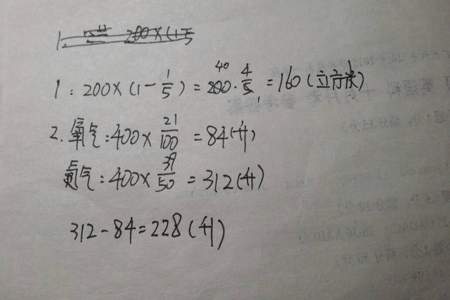 1. 200×(1-5
1: 200×(1-1/5)=200·4/5=160(立方米)
40
1
2. 氧气:400×21/100=84(升)
氮气:400×39/50=312(升)
312-84=228(升)